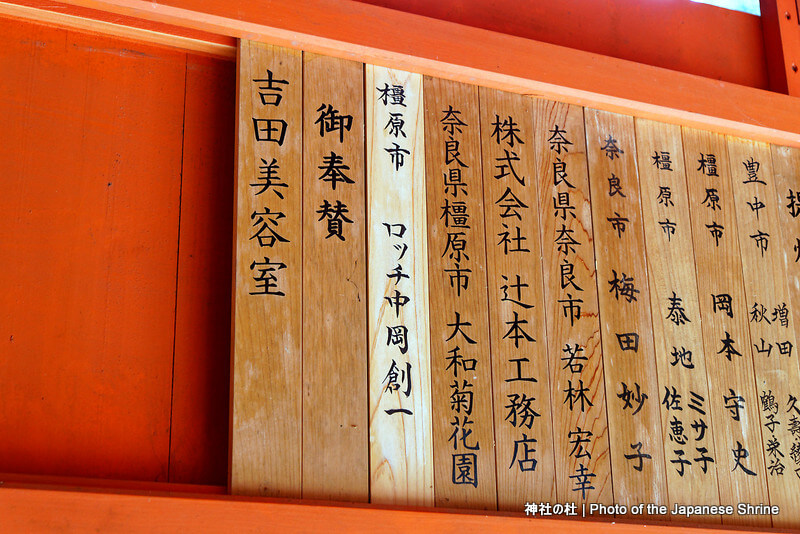 橿原市 ミサ子
岡本守史
豊中市
増田
秋山
鶴子栄治
橿原市
泰地
佐恵子
奈良市 梅田妙子
奈良県奈良市 若林宏幸
株式会社 辻本工務店
奈良県橿原市 大和菊花園
橿原市 ロッチ中岡創一
御奉賛
吉田美容室
神社の杜 | Photo of the Japanese Shrine